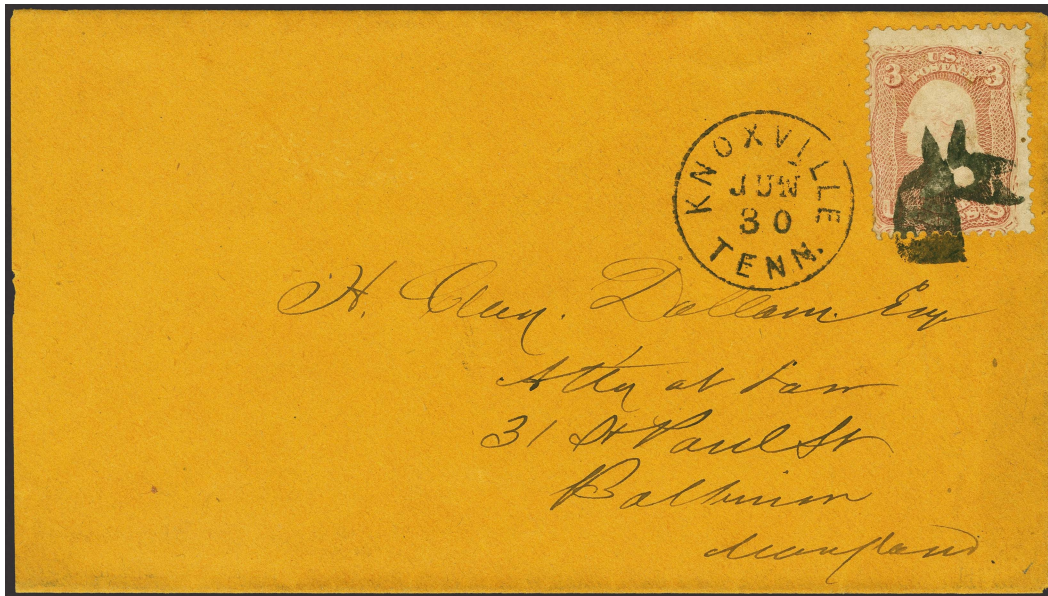 U.S.
POSTAGE
3 3
KNOXVILLE
JUN
30
TENN.
H. Clay. Dallam. Esq
Atty at Law
31 St Paul St
Baltimore
Maryland